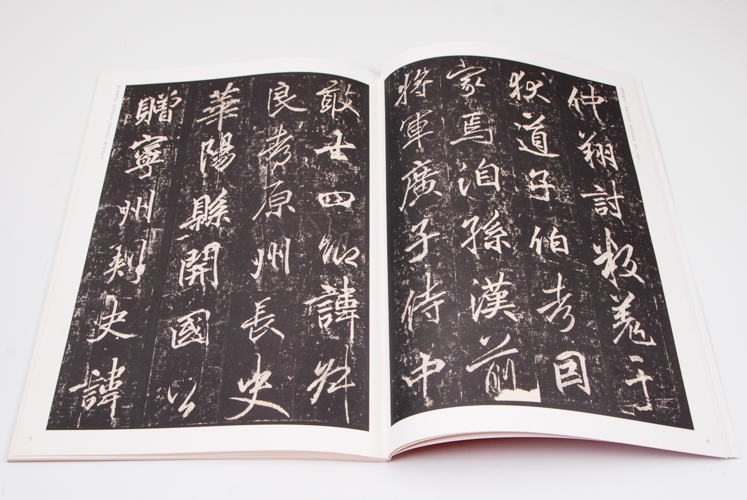 仲翔討叛羌于
狄道子伯考因
家焉洎孫漢前
將軍廣子侍中
敢廿四卿諱叔
良考原州長史
華陽縣開國公
贈寧州刺史諱